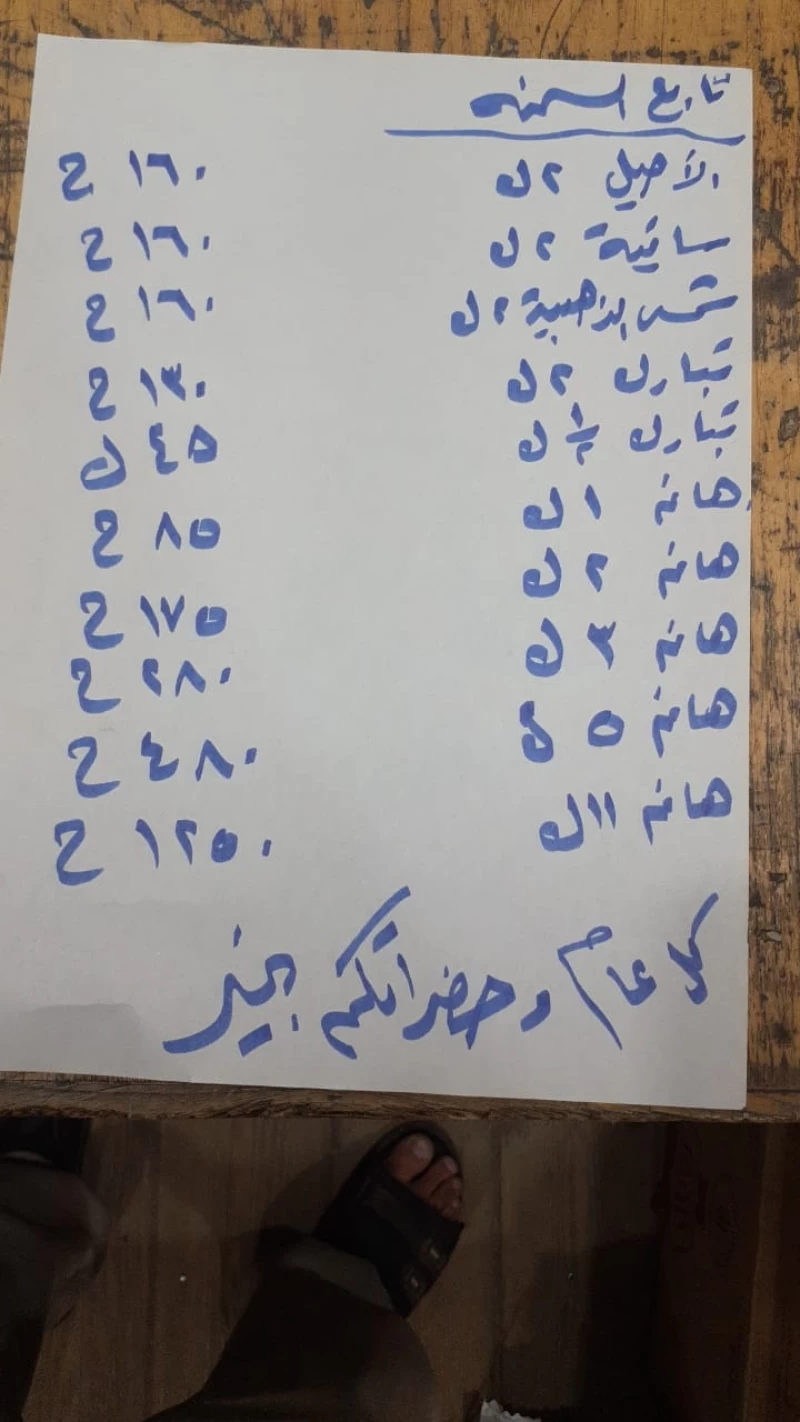 تابع السمنه
الأصيل ٢ ك ١٦٠ ج
ساتية ٢ ك ١٦٠ ج
شمس الذهبية ٢ ك ١٦٠ ج
تبارك ٢ ك ١٣٠ ج
تبارك ١/٢ ك ٤٥ ك
هانم ١ ك ٨٥ ج
هانم ٢ ك ١٧٥ ج
هانم ٣ ك ٢٨٠ ج
هانم ٥ ك ٤٨٠ ج
هانم ١١ ك ١٢٥٠ ج
كل عام وحضراتكم بخير